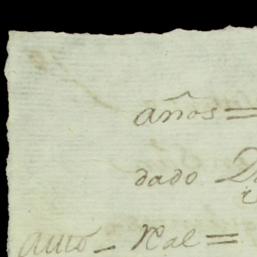 años =
dado
auto - Real =